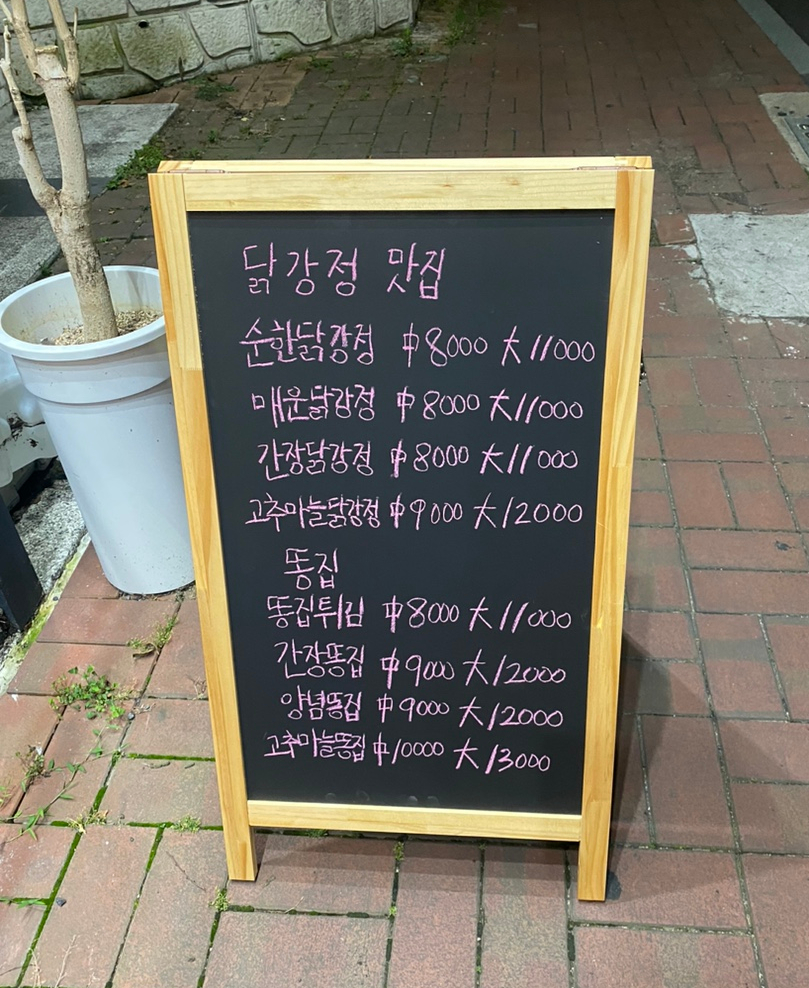 닭강정 맛집
순한닭강정 中8000 大11000
매운닭강정 中8000 大11000
간장닭강정 中8000 大11000
고추마늘닭강정 中9000 大12000
똥집
똥집튀김 中8000 大11000
간장똥집 中9000 大12000
양념똥집 中9000 大12000
고추마늘똥집 中10000 大13000